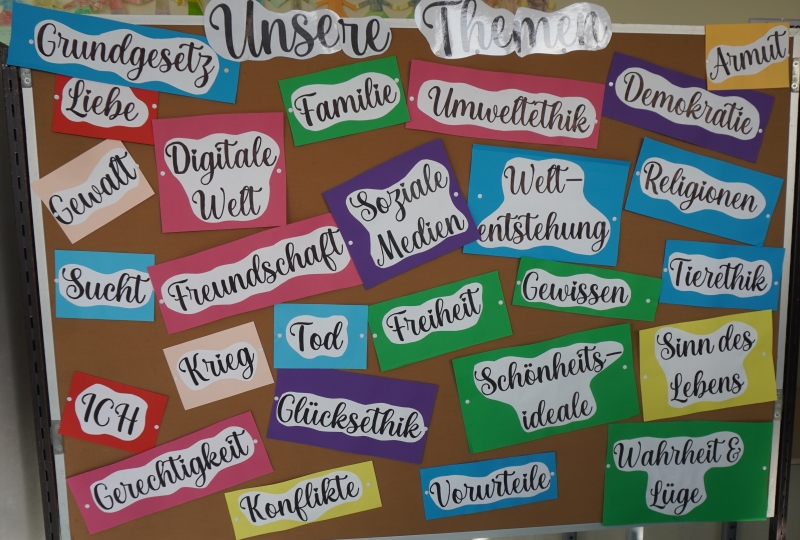 Unsere Themen
Grundgesetz
Armut
Liebe
Familie
Umweltethik
Demokratie
Gewalt
Digitale
Welt
Soziale
Medien
Welt-
entstehung
Religionen
Sucht
Freundschaft
Gewissen
Tierethik
Krieg
Tod
Freiheit
Schönheits-
ideale
Sinn des
Lebens
ICH
Glücksethik
Gerechtigkeit
Konflikte
Vorurteile
Wahrheit &
Lüge